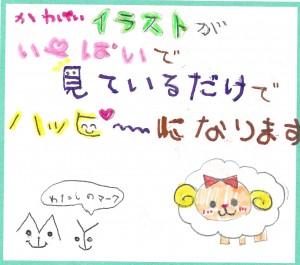 かわいいイラストが
い♡ぱいで
見ているだけで
ハッピ〜になります
わたしのマーク
MY